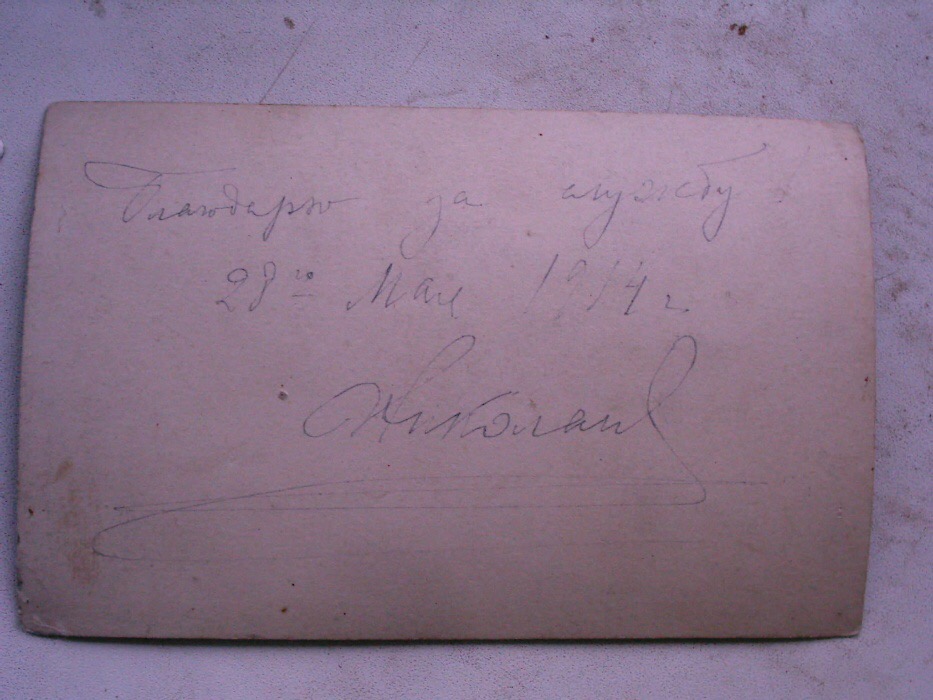 Благодарю за службу!
28го Мая 1914 г.
Николай